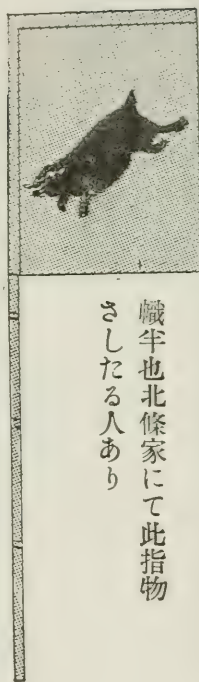 幟半也北條家にて此指物
さしたる人あり